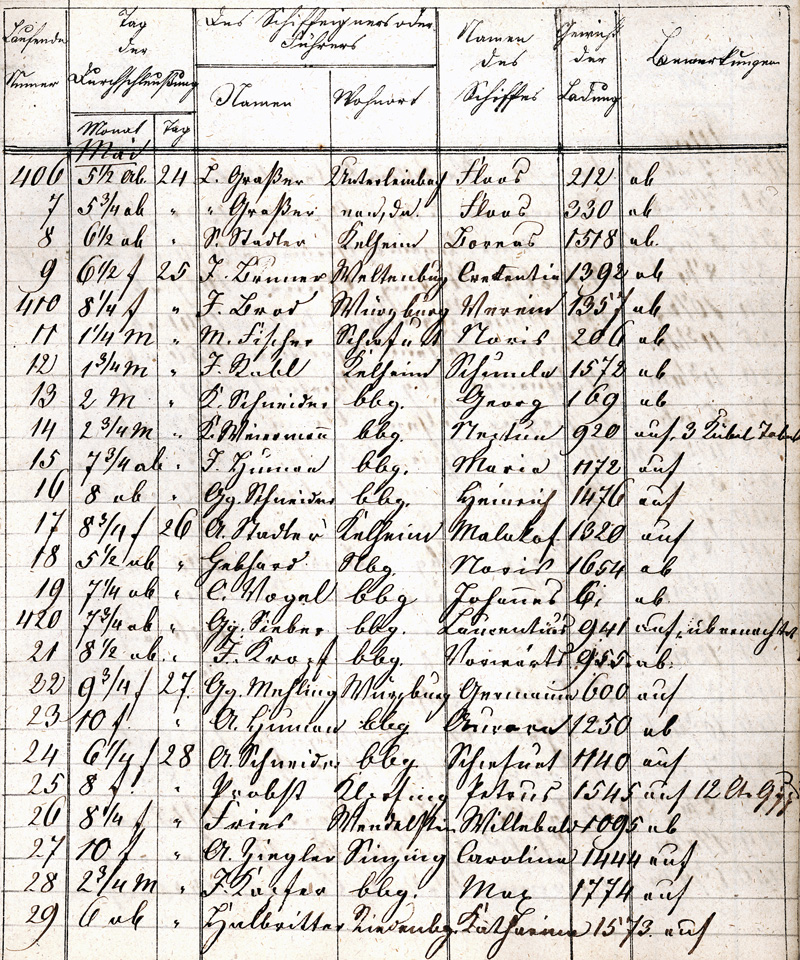 Laufende Numer Tag der Durchschleußung Des Schiffeigners oder Führers Namen des Schiffes Gewicht der Ladung Bemerkungen
Monat Tag Namen Wohnort
Mai
406 5½ ab. 24 L. Graßer Unterleinbach Floos 212 ab
7 5¾ ab " " Graßer von, da. Floos 330 ab
8 6½ ab " S. Stadler Kelheim Boreas 1518 ab.
9 6½ f 25 J. Brunner Weltenburg 1392 ab
410 8¼ f " J. Brod Würzburg Verein 1357 ab
11 1¼ m " M. Fischer Noris 206 ab
12 1¾ m " J. Rabl Kelheim 1572 ab
13 2 m " K. Schneider bbg. Georg 169 ab
14 2¾ m " K. bbg. Neptun 920 auf. 3 Kübel
15 7¾ ab " J. Human bbg. Maria 1172 auf
16 8 ab " Gg. Schneider bbg. Heinrich 1476 auf
17 8¾ f 26 A. Stadler Kelheim Malakof 1320 auf
18 5½ ab " Gebhard Nbg. Noris 1654 ab
19 7¼ ab " C. Vogel bbg Johannes 6. ab
420 7¾ ab " Gg. Sieber bbg. Laurentius 941 auf, übernachtet
21 8½ ab. " F. Kropf bbg. Vorwärts 955 ab.
22 9¾ f 27 Gg. Mehling Würzburg Germania 600 auf
23 10 f. " A. Human bbg Aurora 1250 ab
24 6¼ f 28 A. Schneider bbg 1140 auf
25 8 f. " Probst Petrus 1545 auf 12
26 8¼ f " Fries Wendelstein Willebald 1095 ab
27 10 f " A. Ziegler Sinzing Carolina 1444 auf
28 2¾ m " J. bbg. Max 1774 auf
29 6 ab " Halbritter Riedenbg. Katharina 1573. auf